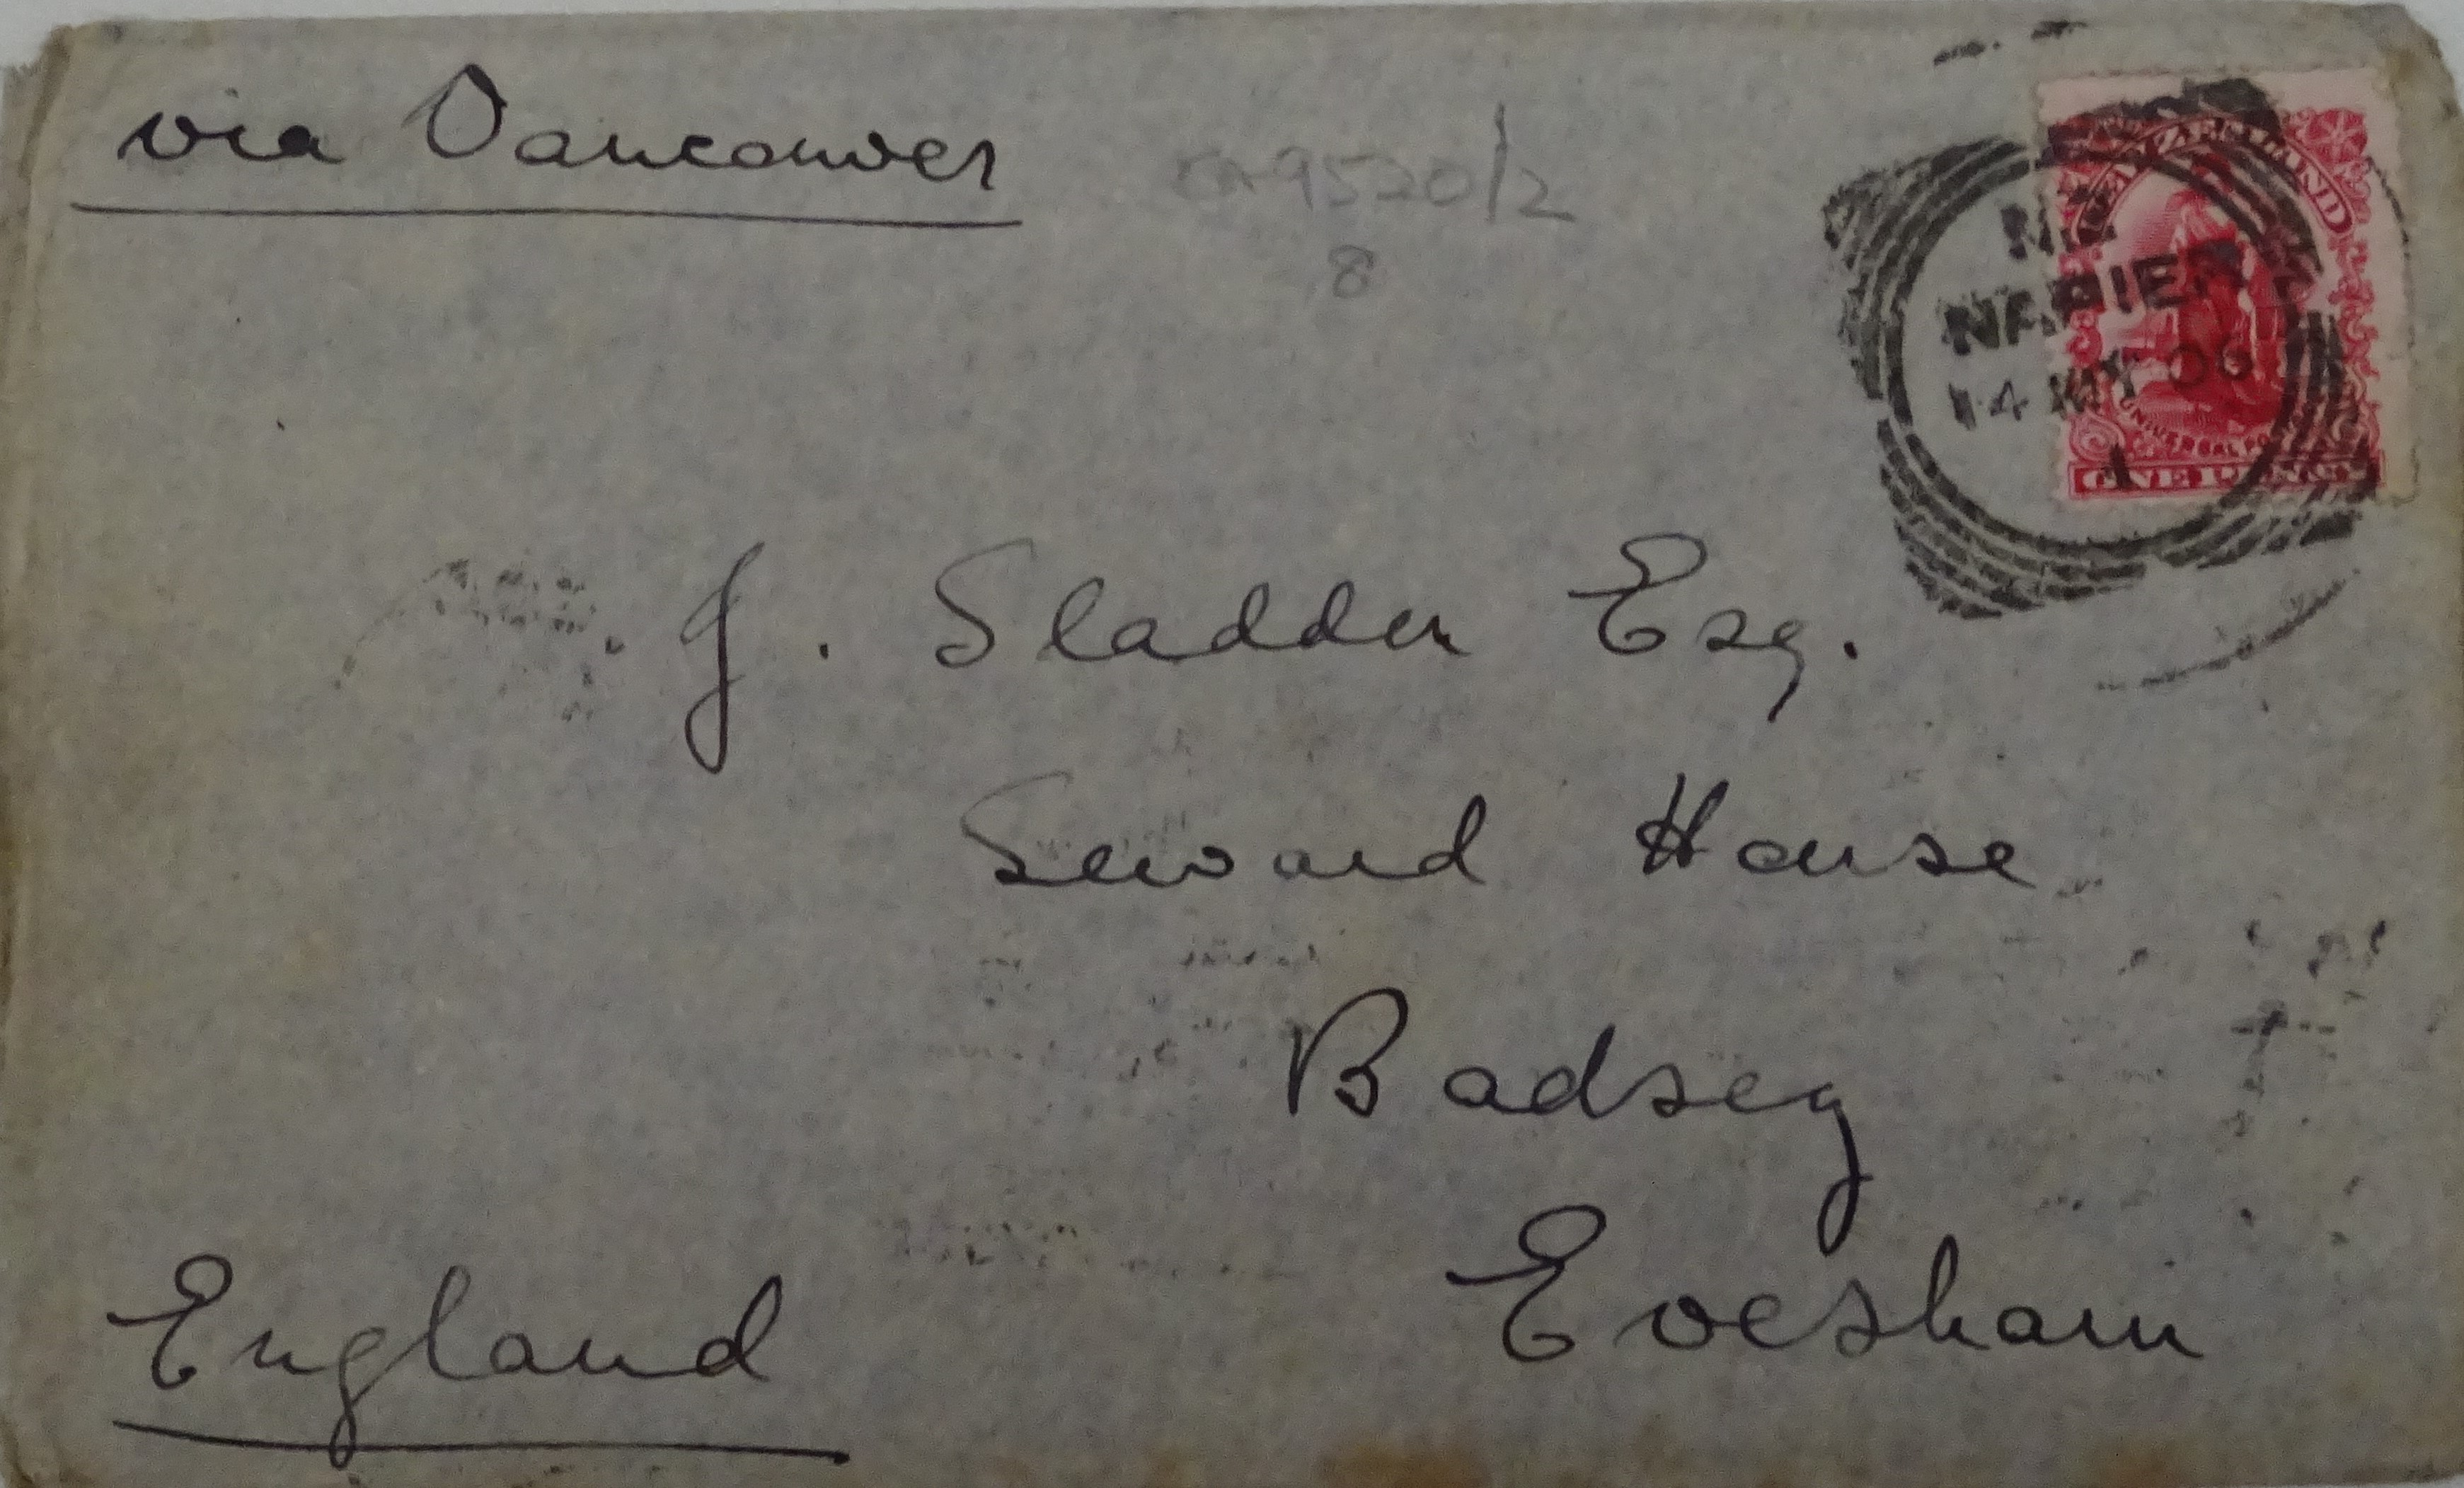 via Vancouver
9520/2
8
NEW ZEALAND
N.Z
NAPIER
14 MY 06
1
UNIVERSAL
ONE PENNY
J. Sladden Esq.
Seward House
Badsey
Evesham
England